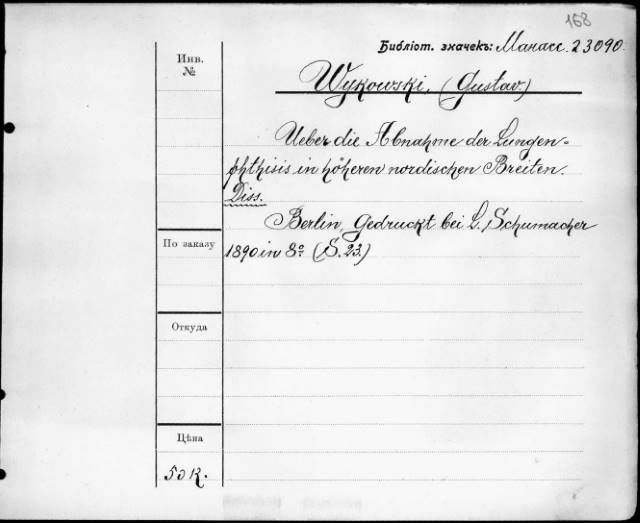 168
Библіот. значекъ: Манасс. 23090.
Инв.
№
Wykowski, (Gustav.)
Ueber die Abnahme der Lungen=
phthisis in höheren nordischen Breiten.
Diss.
Berlin, Gedruckt bei L. Schumacher
По заказу
1890 in 8º (S. 23.)
Откуда
Цѣна
50 к.